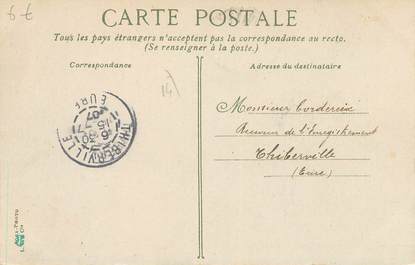 CARTE POSTALE
Tous les pays étrangers n'acceptent pas la correspondance au recto.
(Se renseigner à la poste.)
Correspondance
Adresse du destinataire
Monsieur Cordereix
Receveur de l'Enregistrement
Thiberville
(Eure)
THIBERVILLE
EURE